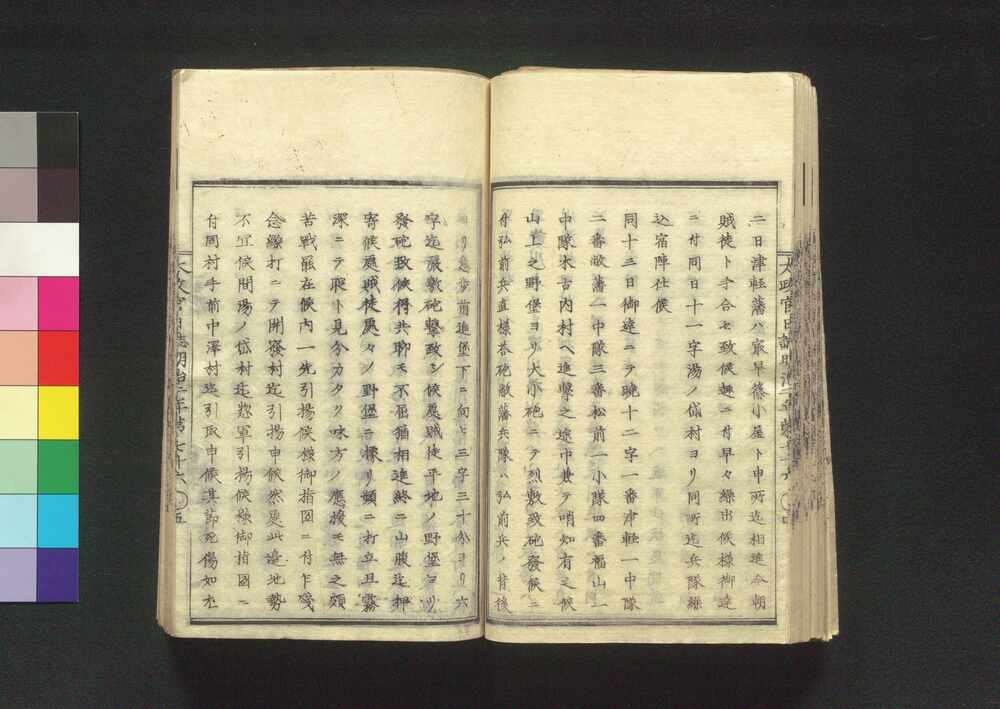 二日津軽藩ハ最早篠小屋ト申所迄相進今朝
賊徒ト手合セ致候趣ニ付早々繰出候様御達
ニ付同日十一字湯ノ岱村ヨリ同所迄兵隊繰
込宿陣仕候
同十三日御達ニテ暁十二字一番津軽一中隊
二番敝藩一中隊三番松前一小隊四番福山一
中隊木古内村ヘ進撃之途中賊テ哨知有之候
山上之野堡ヨリ大小砲ニテ烈敷致砲發候ニ
付弘前兵直様答砲敝藩兵隊ハ弘前兵ノ背後
ヨリ急歩前進堡下ニ向ヒ三字三十分ヨリ六
字迄厳敷砲撃致シ候處賊徒平地ノ野堡ヨリ
發砲致候得共聊モ不屈猶相進終ニ山腹迄押
寄候處賊徒處々ノ野堡ニ據リ頻ニ打立且霧
深ニテ聢ト見分カタク味方ノ應援モ無之頗
苦戦罷在候内一先引揚候様御指図ニ付乍残
念繰打ニテ開發村迄引揚申候然處此邉地勢
不宜候間湯ノ岱村迄惣軍引揚候様御指図ニ
付同村手前中澤村迄引取申候其節死傷如左
太政官日誌明治二年第七十六
〇五